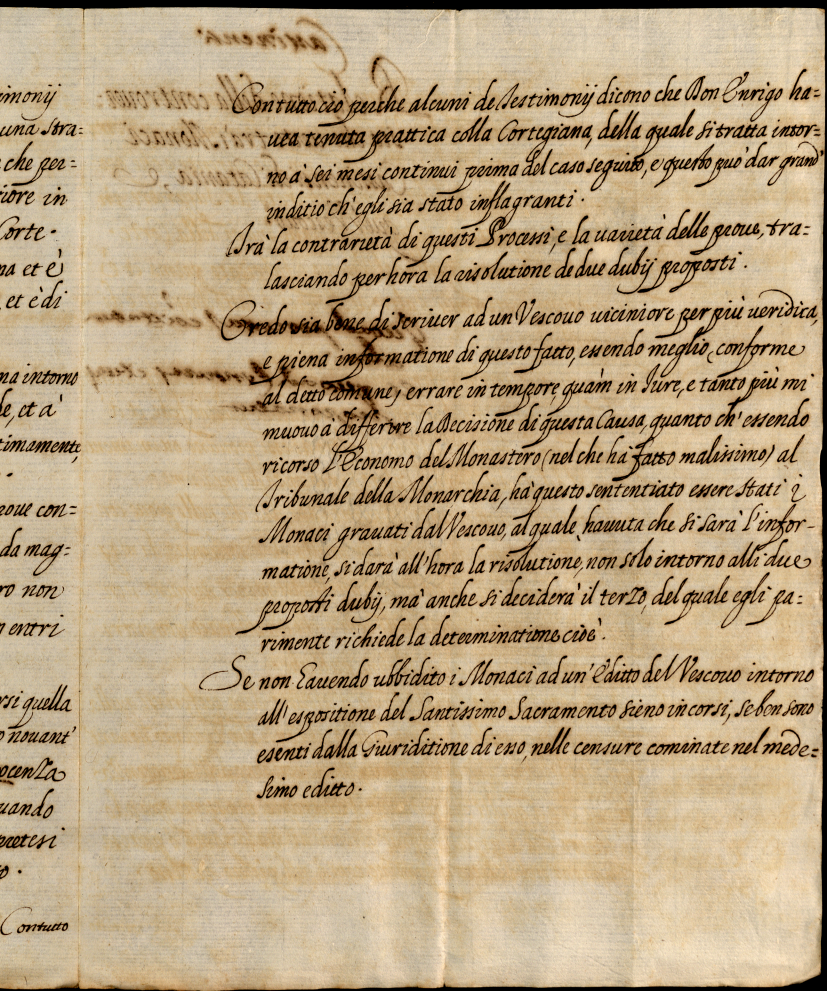 imonij
una stra=
che per=
iore in
Corte.
na et è
et è di
na intorno
le, et à
timamente,
roue con=
da mag=
ro non
n entri
rsi quella
o nouant'
ocenza
uando
pretesi
o.
Contutto
Contutto ciò perche alcuni de Testimonij dicono che Don Enrigo ha=
uea tenuta prattica colla Cortegiana, della quale si tratta intor=
no à sei mesi continui prima del caso seguito, e questo può dar grand'
inditio ch'egli sia stato inflagranti.
Frà la contrarietà di questi Processi, e la varietà delle proue, tra=
lasciando per hora la risolutione de due dubij proposti.
Credo sia bene di scriuer ad un Vescouo uiciniore per più ueridica,
e piena informatione di questo fatto, essendo meglio, conforme
al detto comune, errare in tempore quàm in Iure, e tanto più mi
muouo à differire la Decisione di questa Causa, quanto ch'essendo
ricorso l'Economo del Monastero (nel che hà fatto malissimo) al
Tribunale della Monarchia, hà questo sententiato essere stati i
Monaci grauati dal Vescouo, al quale, hauuta che si sarà l'infor-
matione, si darà all'hora la risolutione, non solo intorno alli due
proposti dubij, mà anche si deciderà il terzo, del quale egli pa=
rimente richiede la determinatione cioè.
Se non hauendo ubbidito i Monaci ad un'Editto del Vescouo intorno
all'espositione del Santissimo Sacramento sieno incorsi, se ben sono
esenti dalla Giuriditione di esso, nelle censure cominate nel mede=
simo editto.